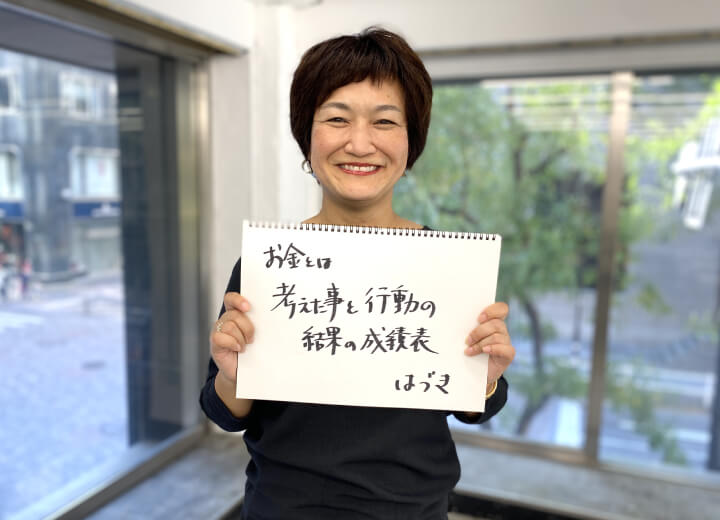 お金とは
考えた事と行動の
結果の成績表
はづき